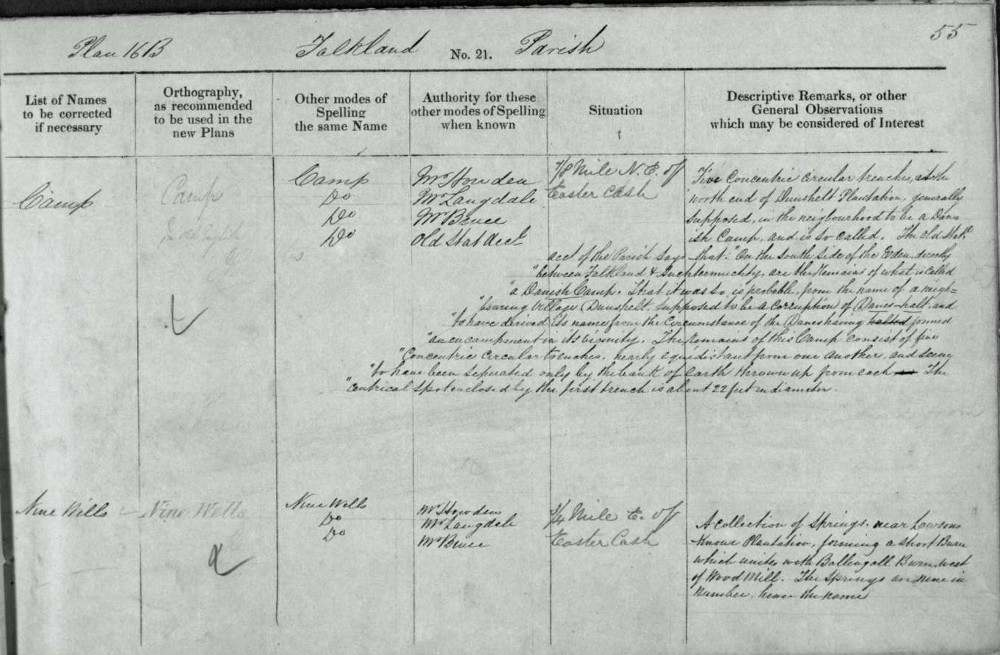 55
Plan 16B Falkland No. 21. Parish
List of Names
to be corrected
if necessary
Orthography,
as recommended
to be used in the
new Plans
Other modes of
Spelling
the same Name
Authority for these
other modes of Spelling
when known
Situation
Descriptive Remarks, or other
General Observations
which may be considered of Interest
Camp
Camp
Camp
Do
Do
Do
Mr Howden
Mr Langdale
Mr Bruce
Old Stat acct
7/8 Mile N.E. of
Easter Cash
Five Concentric circular trenches, at the
north end of Dunshelt Plantation, generally
supposed, in the neigbourhood to be a Dan-
ish Camp, and is so called. The old Statl.
acct of the Parish says that "On the south side of the Eden, directly
"between Falkland & Auchtermuchty, are the Remains of what is called
"a Danish Camp. That it was so, is probable from the name of a neigh-
"bouring Village (Dunshelt supposed to be a corruption of Danes-halt and
"to have derived its name from the Circumstance of the Danes having halted formed
"an encampment in its vicinity. The Remains of this Camp consist of five
"Concentric circular trenches, nearly equidistant from one another, and seem
"to have been seperated only by the bank of Earth thrown up from each The
"centrical spot enclosed by the first trench is about 22 feet in diameter.
Nine Wells
Nine Wells
Nine Wells
Do
Do
Mr Howden
Mr Langdale
Mr Bruce
3/4 Mile E. of
Easter Cash
A collection of Springs, near Lawsons
Knowe Plantation, forming a short Burn
which unites with Ballingall Burn, west
of Wood Mill. The Springs are nine in
Number, hence the name